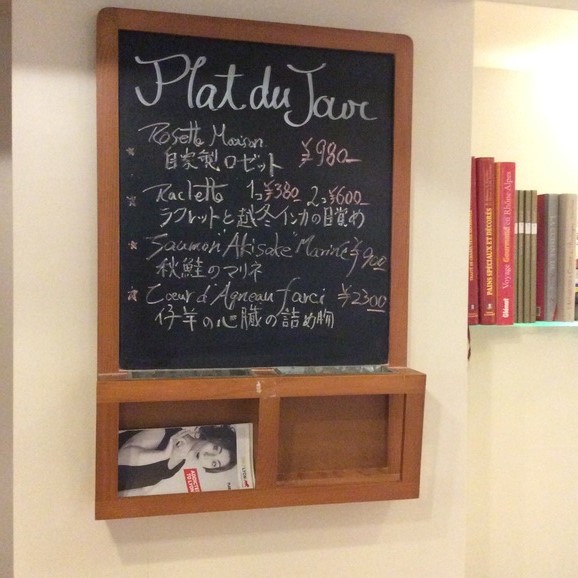 Plat du Jour
Rosette Maison ¥980-
自家製ロゼット
Raclette 1コ¥380 2コ¥600
ラクレットと越冬インカの目覚め
Saumon "Akisake" Mariné ¥900
秋鮭のマリネ
Cœur d'Agneau farci ¥2300
仔羊の心臓の詰め物
PAINS SPÉCIAUX ET DÉCORÉS
Voyage Gourmand en Rhône-Alpes
Glénat